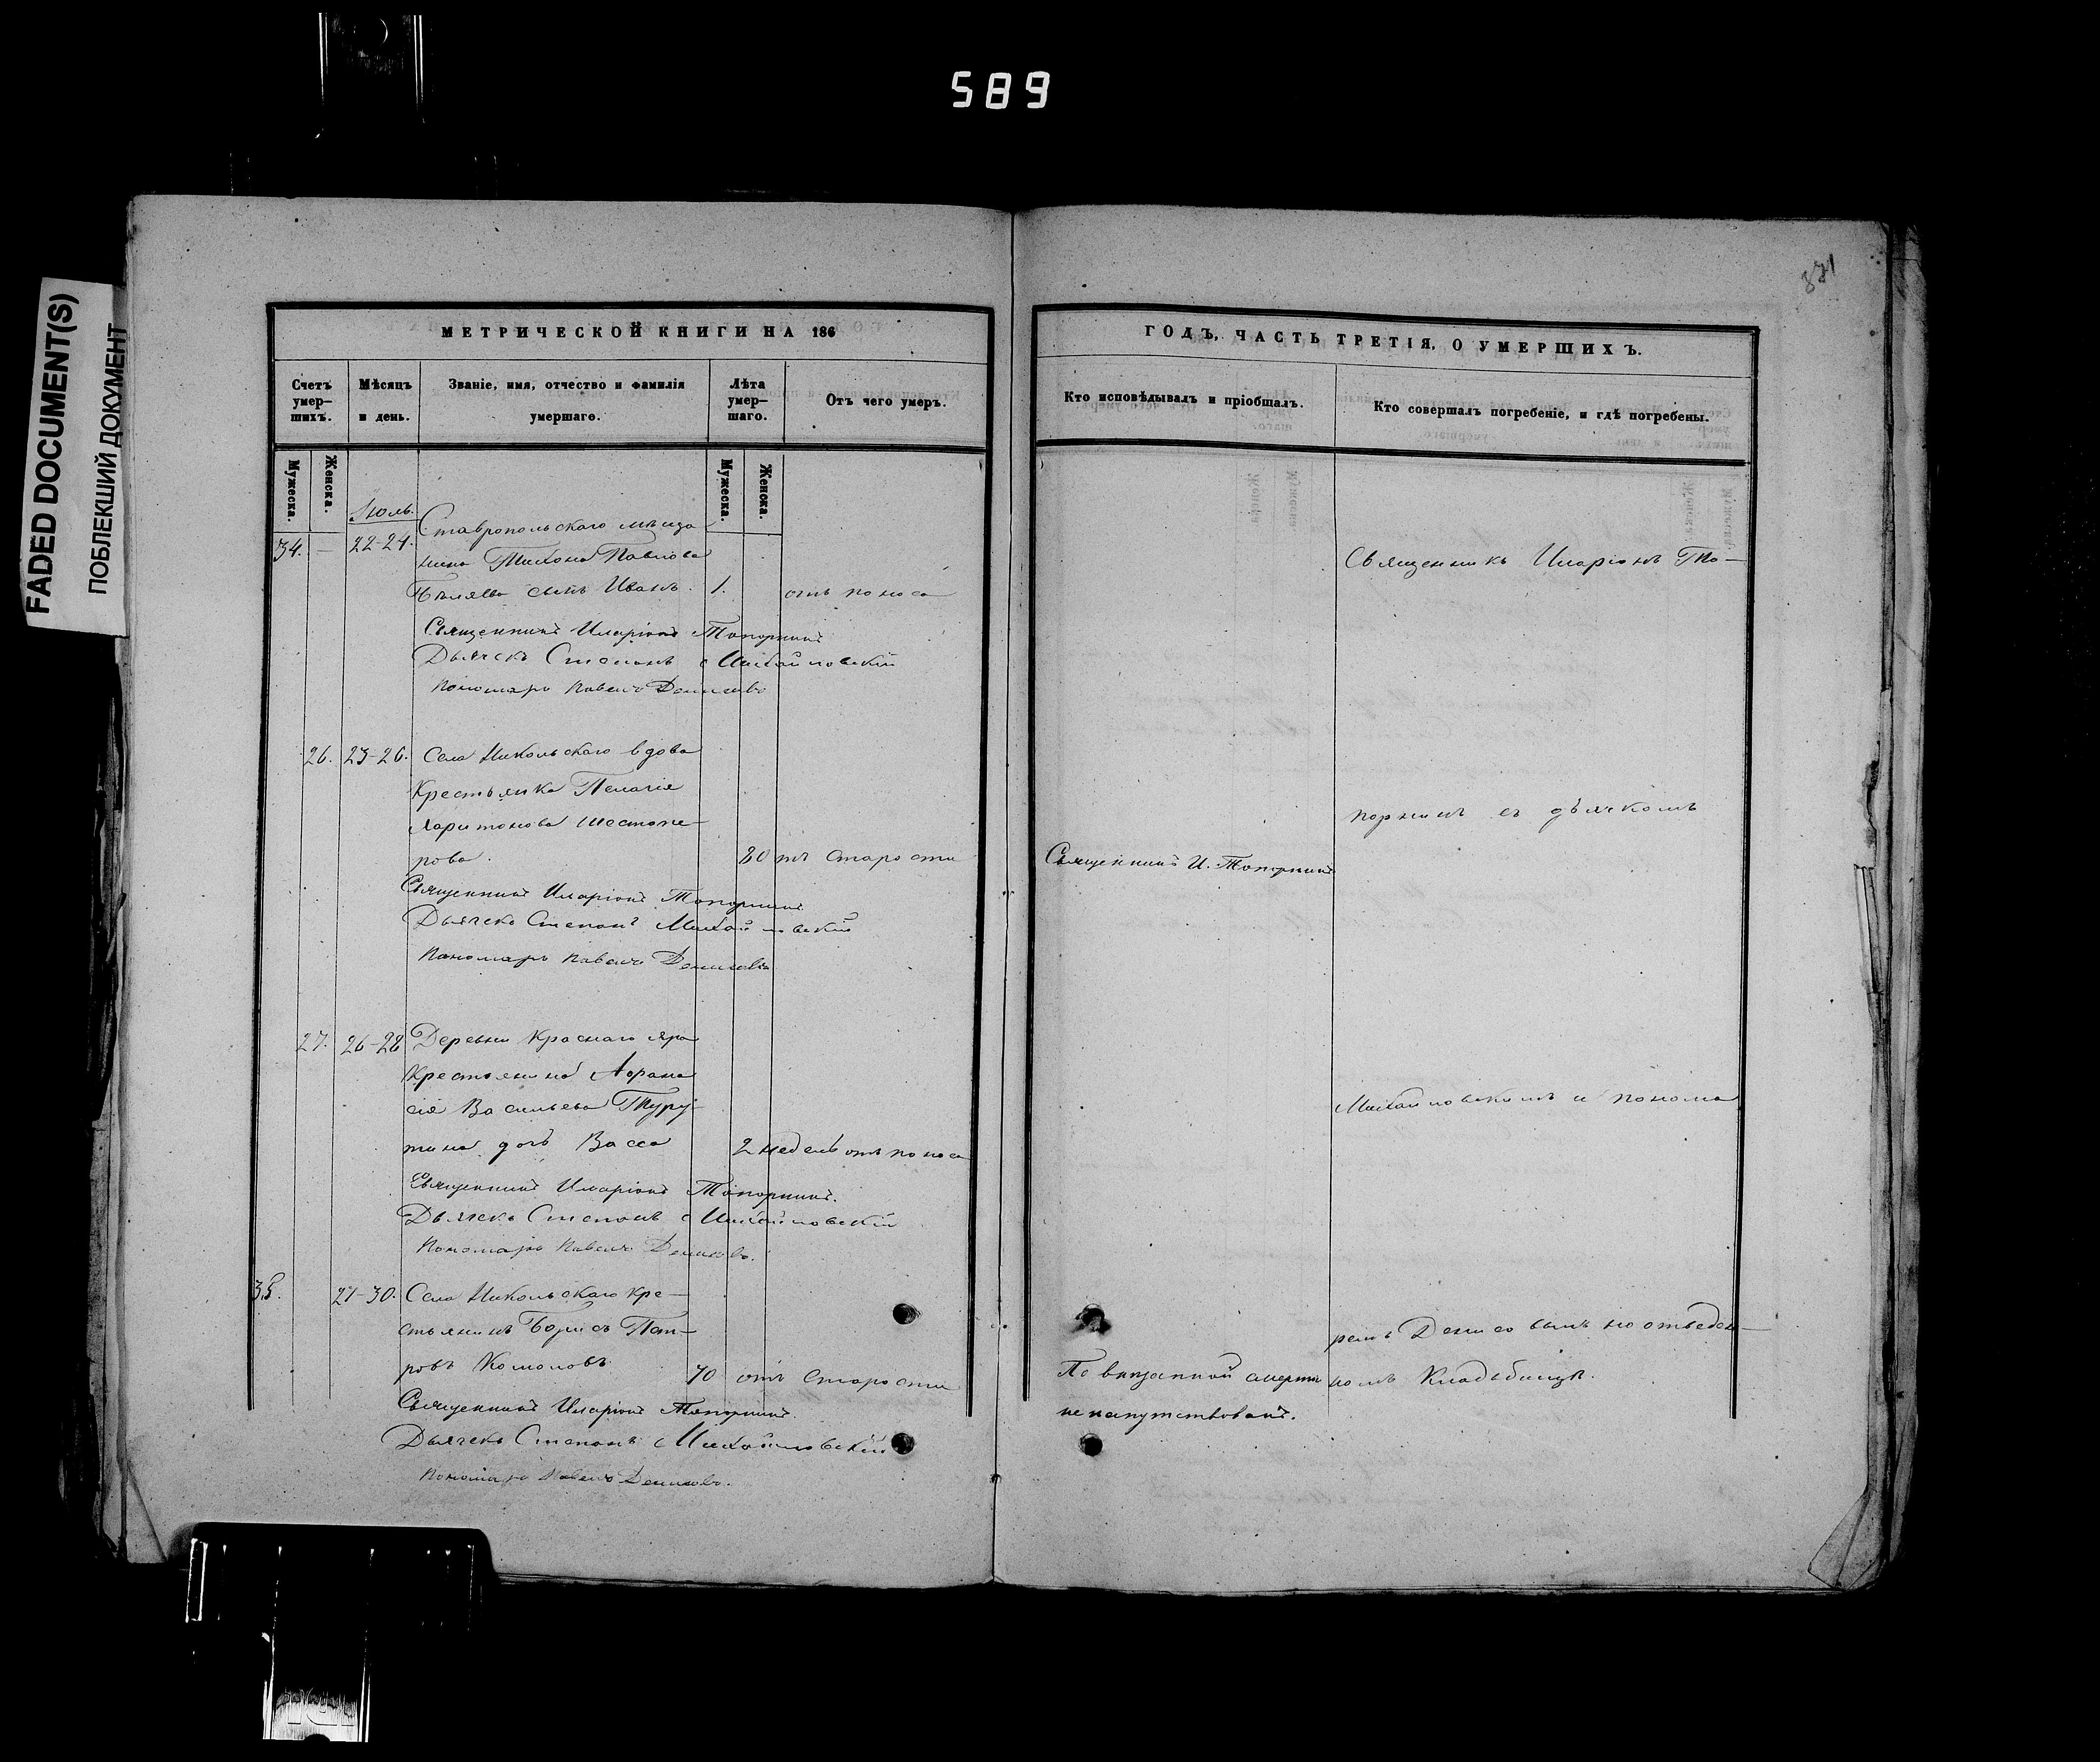 589
FADED DOCUMENT(S)
ПОБЛЕКШИЙ ДОКУМЕНТ
371
МЕТРИЧЕСКОЙ КНИГИ НА 186
Счетъ умер-шихъ.
Мѣсяцъ и день.
Званіе, имя, отчество и фамилія умершаго.
Лѣта умер-шаго.
Отъ чего умеръ.
Мужеска.
Женска.
Мужеска.
Женска.
Июль.
34. — 22-24. Ставропольскаго мѣща
нина Тихона Павлова
Бѣляева сынъ Иванъ. 1. отъ поноса
Священникъ Иларіонъ Топорнинъ
Дьячекъ Степанъ Михайловскій
Пономарь Павелъ Денисовъ
26. 23-26. Села Никольскаго вдова
Крестьянка Пелагія
Харитонова Шестопе-
рова. 80 отъ старости
Священникъ Иларіонъ Топорнинъ
Дьячекъ Степанъ Михайловскій
Пономарь Павелъ Денисовъ
27. 26-28 Деревни Краснаго яра
Крестьянина Афана
сія Васильева Туру-
тина дочь Васса 2 недель отъ поноса
Священникъ Иларіонъ Топорнинъ.
Дьячекъ Степанъ Михайловскій
Пономарь Павелъ Денисовъ.
35. 27-30. Села Никольскаго кре-
стьянинъ Борисъ Пет-
ровъ Комоловъ 70 отъ старости
Священникъ Иларіонъ Топорнинъ.
Дьячекъ Степанъ Михайловскій
Пономарь Павелъ Денисовъ.
ГОДЪ, ЧАСТЬ ТРЕТІЯ, О УМЕРШИХЪ.
Кто исповѣдывалъ и пріобщалъ.
Кто совершалъ погребеніе, и гдѣ погребены.
Священникъ Иларіонъ То-
порнинъ съ дьячкомъ
Священникъ И. Топорнинъ
Михайловскимъ и понома
ремъ Денисовымъ на отведен-
По внезапной смерти
номъ Кладбищѣ.
не напутствованъ.